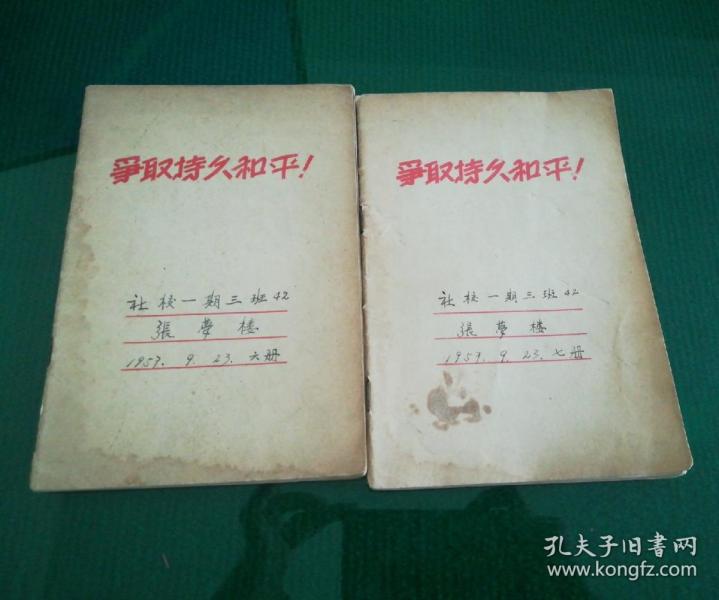 爭取持久和平!
社校一期三班42
張夢楼
1957.9.23.六册
爭取持久和平!
社校一期三班42
張夢楼
1957.9.23.七册
孔夫子旧書网
www.kongfz.com